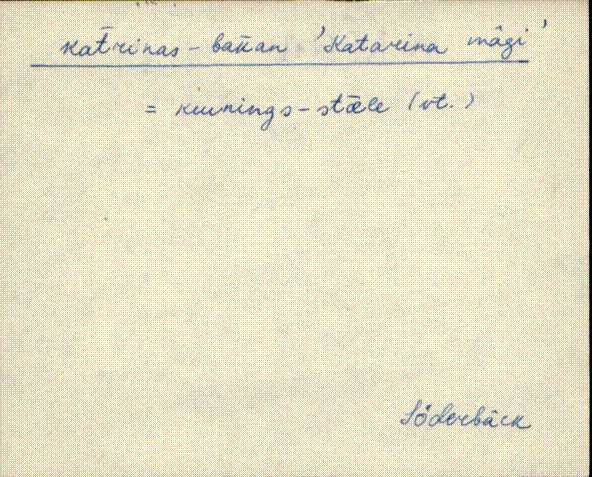 katrinas-bakan 'Katarina mägi'
= kunnings-stæle (vt.)
Söderbäck